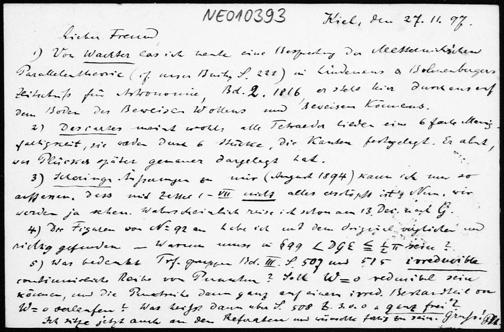 NE010393
Kiel, den 27. 11. 97.
Lieber Freund
1) Von Wachter las ich heute eine Besprechung der Messermitschen
Parallelentheorie (cf unser Buch, S. 221) in Lindenaus & Bohnenbergers
Zeitschrift für Astronomie, Bd. 2. 1816 er steht hier durchaus auf
dem Boden des Beweisen Wollens und Beweisen Könnens.
2) Descartes meint wohl: alle Tetraeder bilden eine 6 fache Mannig-
faltigkeit, sie werden durch 6 Stücke, die Kanten festgelegt. Er ahnt,
was Plücker später genauer dargelegt hat.
3) Scherings Äusserungen an mir (August 1894) kann ich nur so
auffassen, dass mit Zettel 1 – VII nicht alles erschöpft ist. Nun, wir
werden ja sehen. Wahrscheinlich reise ich schon am 13. Dec. nach G.
4) Die Figuren von No 92 an habe ich mit dem Original verglichen und
richtig gefunden — Warum muss in 99 ∠ DGE ≤ ½ π sein?
5) Was bedeutet Trf. gruppen Bd. III. S. 507 und 515 irreducible
continuirliche Reihe von Soll W=0 reducibel sein
können, und die dann ganz auf einem irred. Bestandteil von
W=0 verlaufen? Was heisst dann aber S. 508 Z. ganz frei?
Ich sitze jetzt auch an den Referaten und wünschte fertig zu sein. Gruss!